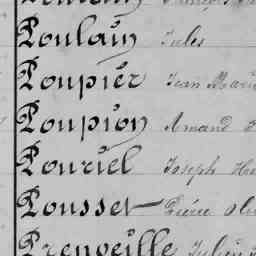 Poulain Jules
Poupier Jean Marie
Poupion Amand
Pouriel Joseph
Pousset Pierre
Prenveille Julien